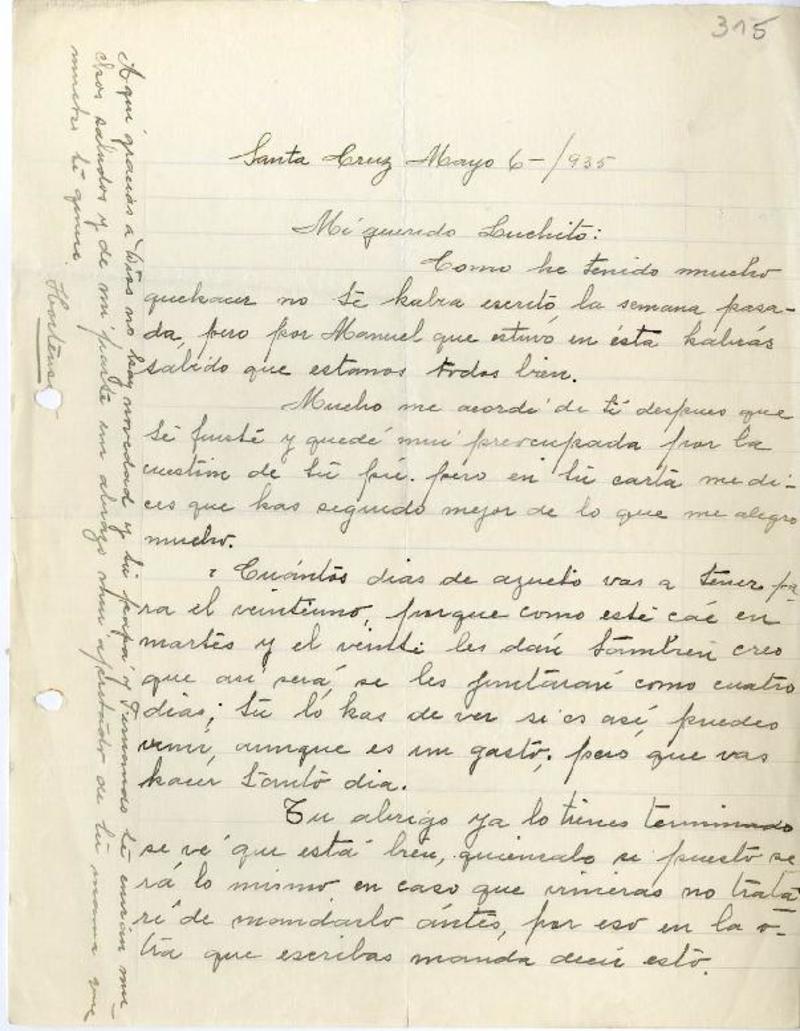 315
Santa Cruz Mayo 6-/935
Mi querido Luchito:
Como he tenido mucho
quehacer no té habia escrito la semana pasa-
da, pero por Manuel que estuvo en ésta habrás
sabido que estamos todos bien.
Mucho me acordé de tí despues que
té fuisté y quedé mui preocupada por la
cuestion de tú pié. pero en tú carta me di-
ces que has seguido mejor de lo que me alegro
mucho.
¿ Cuántos dias de azueto vas a tener pa-
ra el veintiuno, porque como esté cáe en
martes y el veinte les dan tambien creo
que asi será, se les juntaran como cuatro
dias; tú lo has de ver si es así, puedes
venir, aunque es un gasto, pero que vas
hacer tanto dia.
Tu abrigo ya lo tienes terminado
se vé que está bien, quiensabe si puesto se-
rá lo mismo en caso que vinieras no trata-
ré de mandarlo ántes, por eso en la o-
tra que escribas manda decir esto.
Aqui gracias a Dios no hay novedad y tú papá y Fernando té envian mu-
chos saludos y de mi parte un abrazo mui apretado de tú mamá que
mucho té quiere
Hortensia